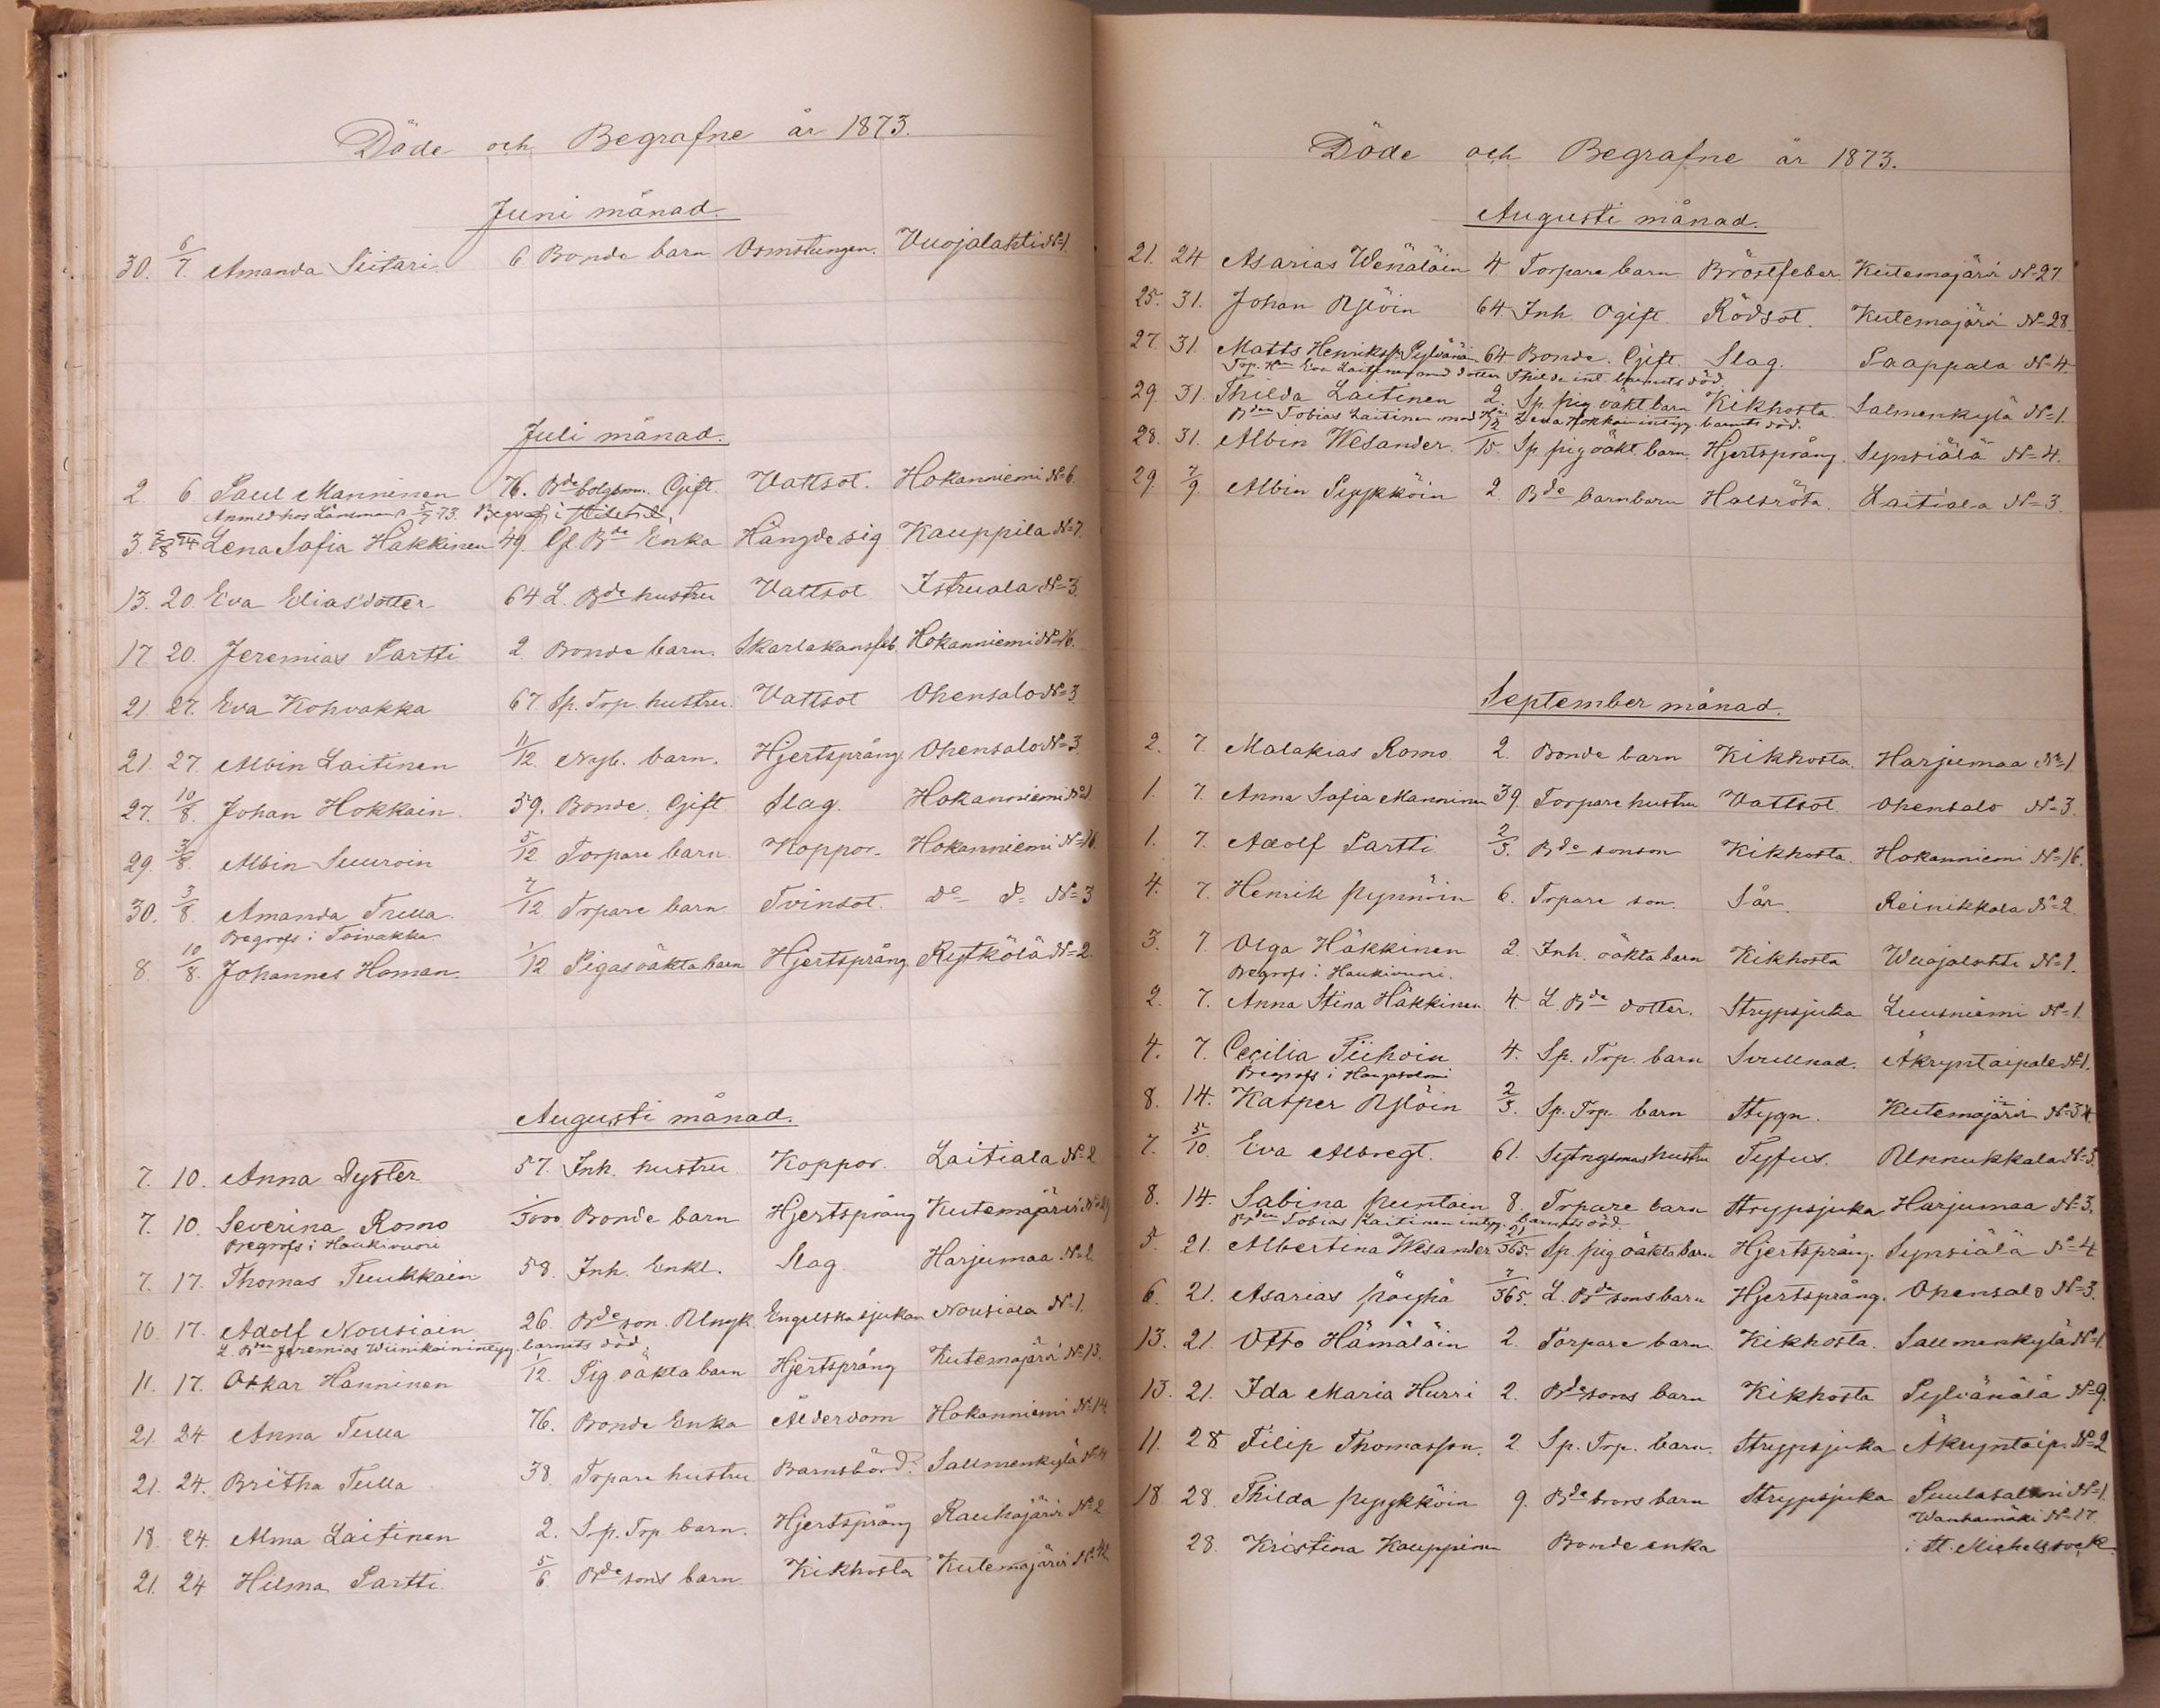 Döde och Begrafne år 1873.
Juni månad.
30. 6/7. Amanda Siitari 6 Bonde barn Ormstungen. Vuojalahti No 1.
Juli månad.
2 6 Paul Manninen 76. Bde bolgsm. Gift. Vattsot. Hokanniemi No 6.
Anmld hos Länsman 5/7 73. Begrafs i
3. Lena Sofia Häkkinen 49. Bde Enka Hängde sig Kauppila No 7.
13. 20. Eva Eliasdotter 64 L. Bde hustru Vattsot Istruala No 3.
17 20. Jeremias Partti 2 Bonde barn. Skarlakansfeb. Hokanniemi No 16.
21 27. Eva Kohvakka 67. Sp. Torp. hustru. Vattsot Ohensalo No 3
21 27. Albin Laitinen 11/12. Nyb. barn. Hjertsprång. Ohensalo No 3
27. 10/8. Johan Hokkain. 59. Bonde. Gift Slag. Hokanniemi No 1
29. 3/8. Albin Suuroin 5/12 Torpare barn. Koppor. Hokanniemi No 16.
30. 3/8. Amanda Trulla. 7/12 Torpare barn Tvinsot. do do No 3
Begrofs i Toivakka.
8. 10/8. Johannes Homan. 1/12 Pigas oäkta barn Hjertsprång Rytkölä No 2.
Augusti månad.
7. 10. Anna Dyster. 57. Inh. hustru Koppor. Laitiala No 2
7. 10. Severina Romo Bonde barn Hjertsprång Kutemajärvi
Begrofs i Haukivuori
7. 17. Thomas Tuukkain 58. Inh. Enkl. Slag. Harjumaa No 2
10. 17. Adolf Nousiain 26. Bde son. Ungk. Engelska sjukan Nousiala No 1.
L. Bden Jeremias Wiinikain intyg. barnets död
11. 17. Oskar Hänninen 1/12. Pig oäkta barn Hjertsprång Kutemajärvi No 13.
21. 24 Anna Tulla 76. Bonde Enka Ålderdom Hokanniemi No 14.
21. 24. Britha Tulla 38 Torpare hustru Barnsbörd. Sallmenkylä No 4
18. 24. Alma Laitinen 2. Sp. Torp barn. Hjertsprång Rauhajärvi No 2
21. 24 Hilma Partti. 5/6. Bde sons barn Kikhosta Kutemajärvi
Döde och Begrafne år 1873.
Augusti månad.
21. 24 Asarias Wenäläin 4 Torpare barn. Bröstfeber Kutemajärvi No 27
25. 31. Johan Nylöin 64. Inh. Ogift. Rödsot. Kutemajärvi No 28.
27. 31. Matts Henrikss. Pylvänäin 64 Bonde. Gift. Slag. Saappala No 4
Trp. Hn Eva Laitinen med dotter Thilda int. barnets död.
29. 31. Thilda Laitinen 2. Sp. pig oäkt barn Kikhosta. Salmenkylä No 1.
Bden Tobias Laitinen med Lena Hokkain intyg. barnets död.
28. 31. Albin Wesander. Sp. pig oäkt barn. Hjertsprång. Synsiälä No 4.
29. 7/9 Albin Pyykköin 2. Bde barnbarn Halsröta. Laitiala No 3.
September månad.
2. 7. Malakias Romo 2. Bonde barn Kikhosta. Harjumaa No 1
1. 7. Anna Sofia Manninen 39. Torpare hustru Vattsot. Ohensalo No 3.
1. 7. Adolf Partti 2/3. Bde sonson Kikhosta. Hokanniemi No 16.
4. 7. Henrik Pynnöin 6. Torpare son. Sår. Reinikkala No 2.
3. 7. Olga Häkkinen 2. Inh. oäkta barn Kikhosta Wuojalahti No 1.
Begrofs i Haukivuori.
2. 7. Anna Stina Häkkinen 4. L. Bde dotter. Strypsjuka Luusniemi No 1.
4. 7. Cecilia Tiihoin 4. Sp. Trp. barn Svullnad. Äkryntaipale No 1.
Begrofs i Hangasalmi
8. 14. Kasper Nylöin 2/3. Sp. Trp. barn Stygn. Kutemajärvi No 34.
7. 5/10. Eva Albregt. 61. Sytngsmans hustru Tyfus. Unnukkala No 5.
8. 14. Sabina Puntain 8. Torpare barn Strypsjuka Harjumaa No 3.
Bden Tobias Laitinen intyg. barnets död.
5. 21. Albertina Wesander 21/365. Sp. pig oäkta barn Hjertsprång. Synsiälä No 4
6. 21. Asarias Pöyhä 7/365. L. Bde sons barn Hjertsprång. Ohensalo No 3.
13. 21. Otto Hämäläin 2. Torpare barn. Kikhosta. Sallmenkylä No 1.
13. 21. Ida Maria Hurri 2. Bde sons barn Kikhosta Pylvänälä No 9.
11. 28 Filip Thomasson. 2 Sp. Trp. barn. Strypsjuka Äkryntaip. No 2
18. 28. Thilda Pyykköin 9. Bde brors barn Strypsjuka Puulasalmi No 1.
Wanhamäki No 17.
28. Kristina Kauppinen Bonde enka i St. Michels sock.